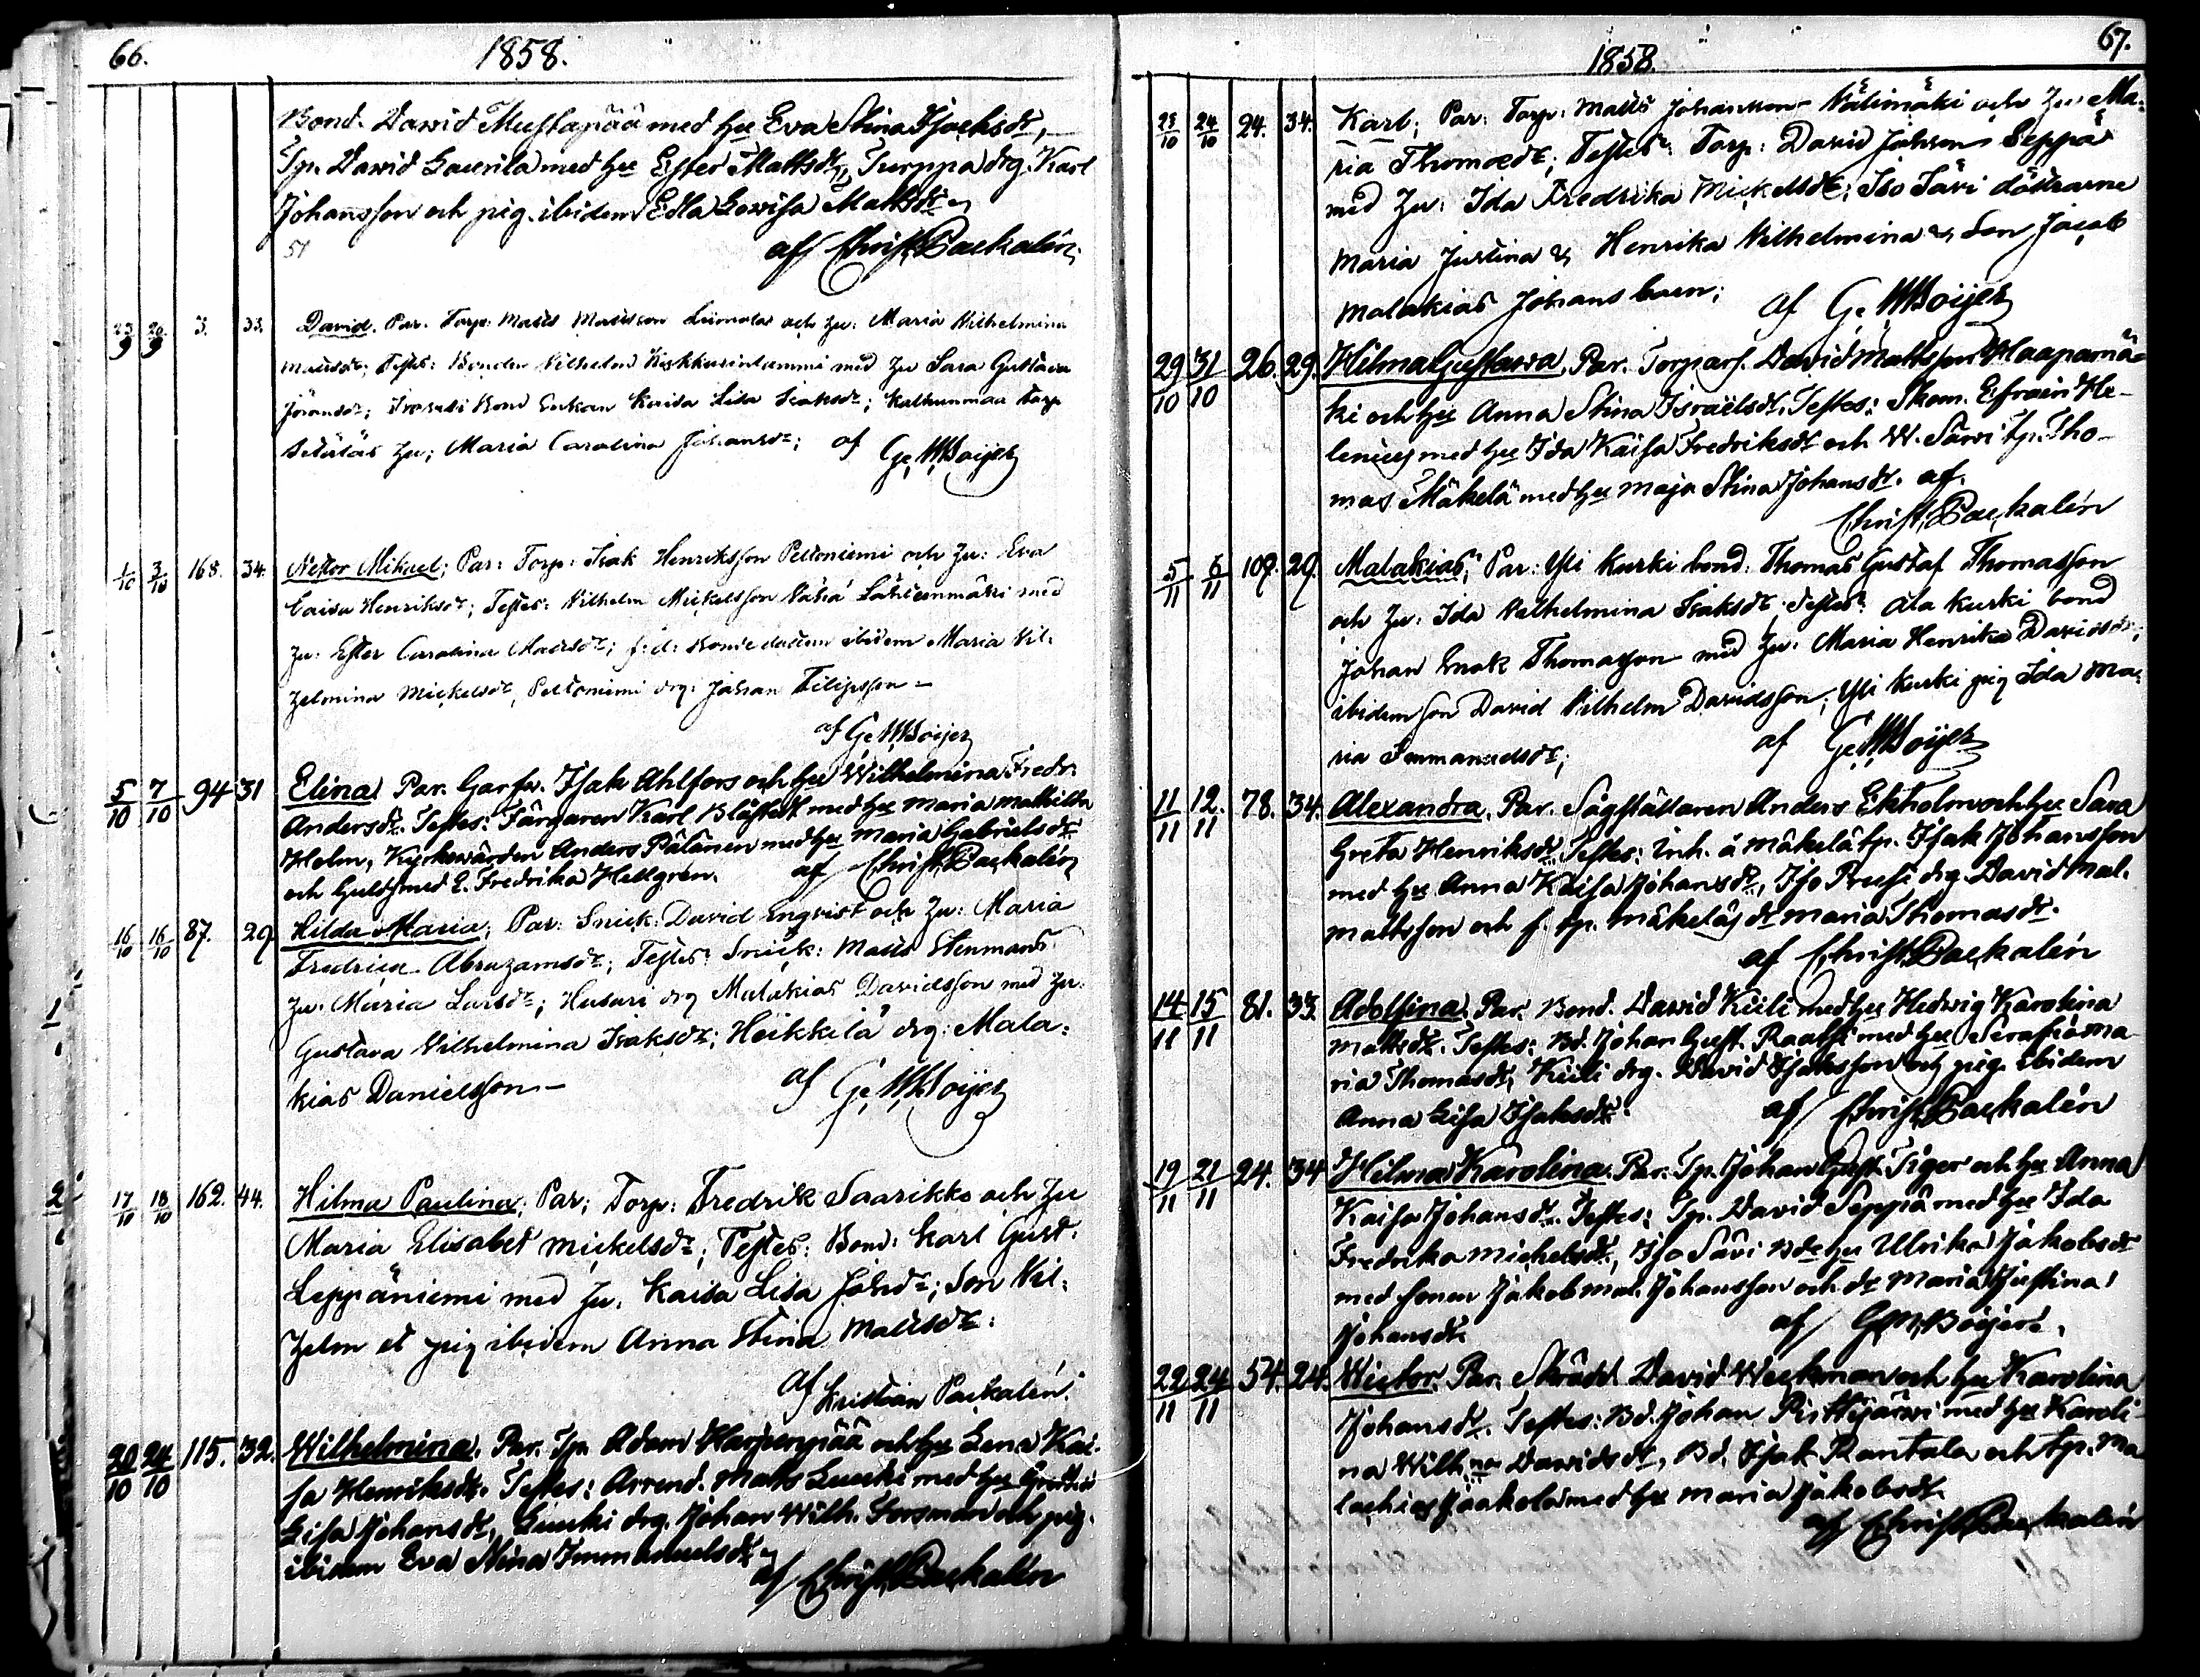 66. 1858.
Bond. David Mustapää med Hu Eva Stina Isaksdr,
Tp. David Laurila med Hu Ester Mattsdr, Turppa drg. Karl
Johansson och pig. ibidem Edla Lovisa Mattsdr
51 af Christ. Paekalén
23/9 26/9 3. 33. David. Par. Torp: Matts Mattsson och Hu: Maria Wilhelmina
Mattsdr; Testes: Bonden Wilhelm med Hu Sara Gustava
Bond Kaisa Lisa Isaksdr; Torp
Hu; Maria Carolina Johansdr; af G. M. Boijer
1/10 3/10 168. 34. Nestor Mikael; Par: Torp: Isak Henriksson Peltoniemi och Hu: Eva
Caisa Henriksdr; Testes: Wilhelm Mickelsson Vähä med
Hu: Ester Carolina Mattsdr; ibidem Maria Vil-
helmina Mickelsdr, Peltoniemi drg: Johan Filipsson
af G. M. Boijer
5/10 7/10 94 31 Elina Par. Garfv. Isak Ahlfors och Hu Wilhelmina Fredr.
Andersdr. Testes: Färgaren Karl Blåfield med Hu Maria Mathilda
Holm, Kyrkovärden Anders Pälänen med Hu Maria Gabrielsdr
och Guldsmed E. Fredrika Hellgrén. af Christ. Paekalén
16/10 16/10 87. 29 Hilda Maria; Par: Snick: David Engvist och Hu: Maria
Fredrica Abrahamsdr; Testes: Snick: Matts Stenmans
Hu: Maria Larsdr; Husari drg Malakias Davidsson med Hu:
Gustava Vilhelmina Isaksdr; Heikkilä drg: Mala-
kias Danielsson af G. M. Boijer
17/10 18/10 162. 44. Hilma Paulina; Par; Torp: Fredrik Saarikko och Hu
Maria Elisabet Mickelsdr; Testes: Bond: Karl Gust:
Leppäniemi med Hu. Kaisa Lisa Johsdr; Son Vil-
helm et pig ibidem Anna Stina Mattsdr:
af Kristian Paekalén
20/10 24/10 115. 32. Wilhelmina. Par. Tp. Adam Harjunpää och Hu Lena Kai-
sa Henriksdr. Testes: Arrend. Matts Luuki med Hu
Lisa Johansdr, Luuki drg. Johan Wilh. Forsman och pig.
ibidem Eva Stina Immanuelsdr
af Christ. Paekalén
1858. 67.
23/10 24/10 24. 34. Karl; Par: Torp: Matts Johansson Välimäki och Hu Ma-
ria Thomædr; Testes: Torp: David Johsson Seppä
med Hu: Ida Fredrika Mickelsdr; Iso Sävi döttrarne
Maria Justina & Henrika Vilhelmina & Son Jacob
Malakias Johans barn; af G. M. Boijer
29/10 31/10 26. 29. Hilma Gustava. Par. Torpar. David Mattsson Haapamä-
ki och Hu Anna Stina Israëlsdr. Testes: Skom. Efraim He-
lenius med Hu Ida Kaisa Fredriksdr och W. Sävi tp. Tho-
mas Mäkelä med Hu Maja Stina Johansdr. af
Christ. Paekalén
5/11 6/11 109. 29. Malakias; Par: Yli Kurki bond: Thomas Gustaf Thomasson
och Hu: Ida Vilhelmina Isaksdr Testes: Ala Kurki bond
Johan Enok Thomasson med Hu: Maria Henrika Davidsdr;
ibidem son David Vilhelm Davidsson; Yli Kurki pig Ida Ma-
ria Immanuelsdr; af G. M. Boijer
11/11 12/11 78. 34. Alexandra. Par. Sågställaren Anders Ekholm och Hu Sara
Greta Henriksdr. Testes: Inh. å Mäkelä tp. Isak Johansson
med Hu Anna Kaisa Johansdr, Iso Preusi drg David Mal.
Mattsson och f. tp. Mäkeläs dr Maria Thomasdr.
af Christ. Paekalén
14/11 15/11 81. 33. Adolfina. Par. Bond. David Kiili med Hu Hedvig Karolina
Mattsdr. Testes: Bd. Johan Gust. Raatsi med Hu Serafia Ma-
ria Thomasdr, Kiili drg. David Isaksson och pig. ibidem
Anna Lisa Isaksdr. af Christ. Paekalén
19/11 21/11 24. 34 Hilma Karolina. Par. Tp. Johan Gust. Tiger och Hu Anna
Kaisa Johansdr. Testes: Tp. David Seppä med Hu Ida
Fredrika Mickelsdr, Iso Sävi Bde Hu Ulrika Jakobsdr
med sonen Jakob Mal. Johansson och dr Maria Justina
Johansdr. af G. M. Boijer.
22/11 24/11 54. 24. Victor. Par. Skrädd. David Weckman och Hu Karolina
Johansdr. Testes: Bd. Johan Pirttijärvi med Hu Karoli-
na Wilhna Davidsdr, Bd. Isak Rantala och tp. Ma-
lachias Jaakola med Hu Maria Jakobsdr.
af Christ. Paekalén